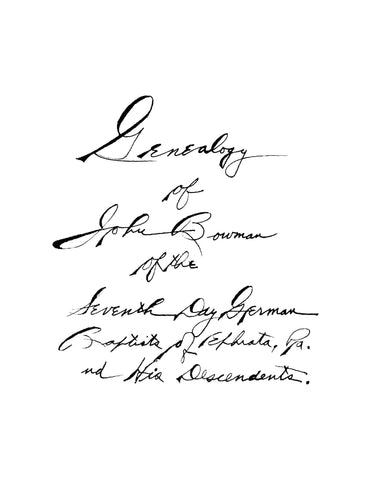 Genealogy
of
John Bowman
of the
Seventh Day German
Baptists of Ephrata, Pa.
nd His Descendents.